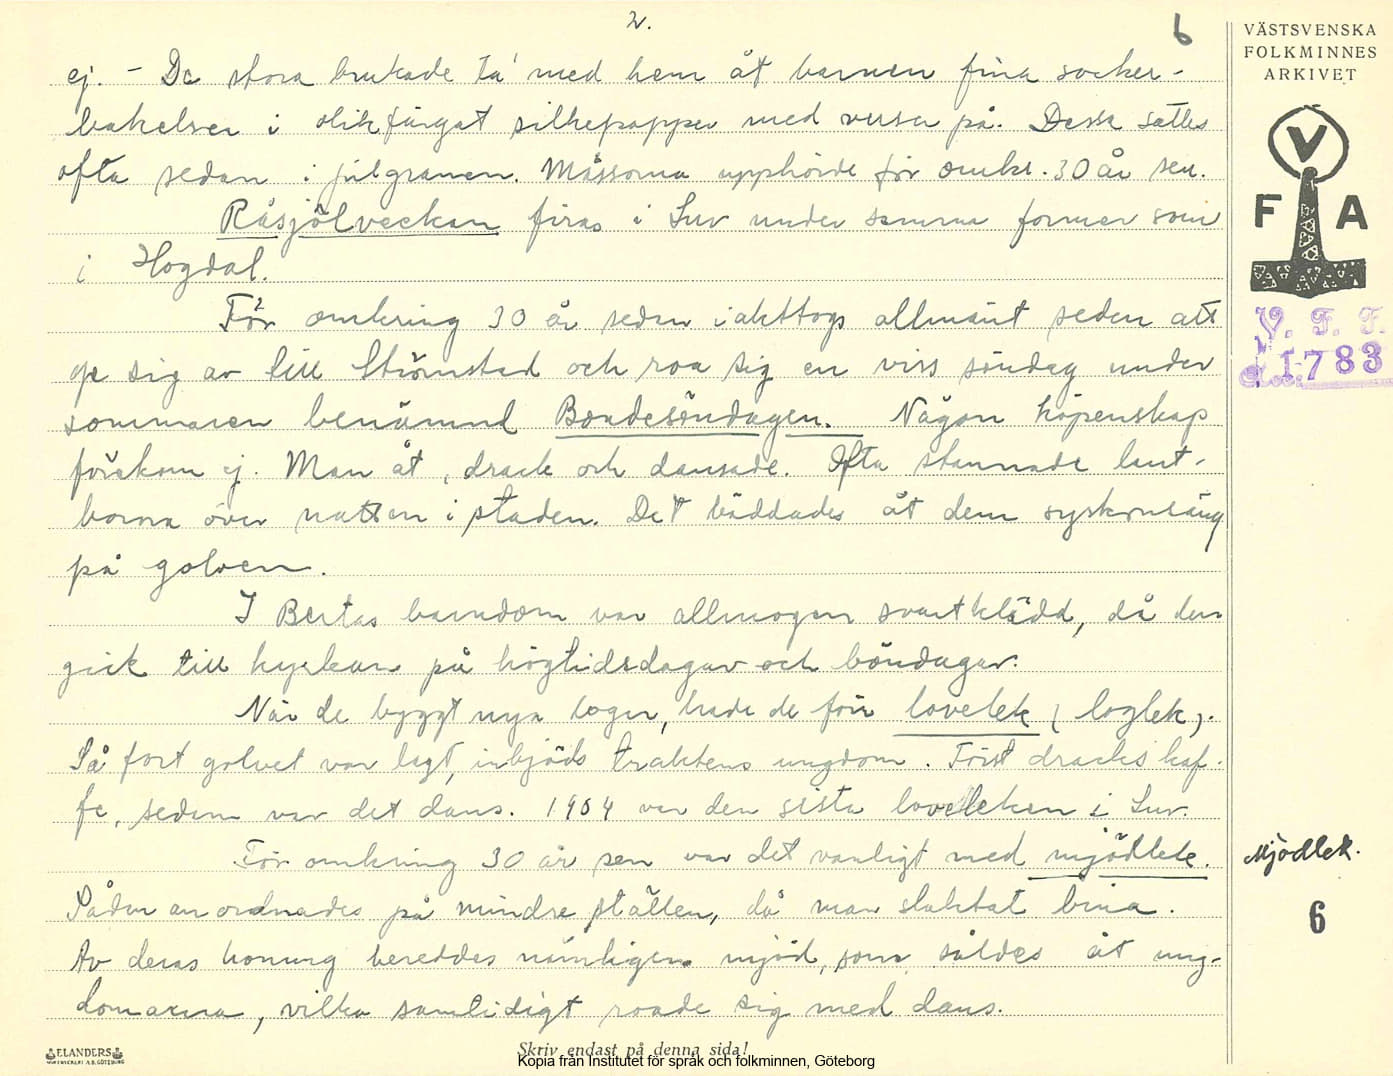 2.
6
VÄSTSVENSKA
FOLKMINNES
ARKIVET
ej. – De stora brukade ta' med hem åt barnen fina socker-
bakelser i olikfärgat silkepapper med verser på. Dessa sattes
ofta sedan i julgranen. Mässorna upphörde för omkr. 30 år sen.
Råsjölveckan firas i Lur under samma former som
i Hogdal.
För omkring 30 år sedan iakttogs allmänt seden att
ge sig av till Strömstad och roa sig en viss söndag under
sommaren benämnd Bondesöndagen. Någon köpenskap
förekom ej. Man åt, drack och dansade. Ofta stannade lant-
borna över natten i staden. Det bäddades åt dem syskonsäng
på golven.
I Bertas barndom var allmogen svartklädd, då den
gick till kyrkan på högtidsdagar och böndagar.
När de byggt nya loger, hade de förr lovelek (loglek).
Så fort golvet var lagt, inbjöds traktens ungdom. Först dracks kaf-
fe, sedan var det dans. 1904 var den sista loveleken i Lur.
För omkring 30 år sen var det vanligt med mjödlek.
Sådan anordnades på mindre ställen, då man slaktat bina.
Av deras honung bereddes nämligen mjöd, som såldes åt ung-
domarna, vilka samtidigt roade sig med dans.
V
F A
V. F. F.
1783
Mjödlek.
6
ELANDERS
Skriv endast på denna sida!
Kopia från Institutet för språk och folkminnen, Göteborg